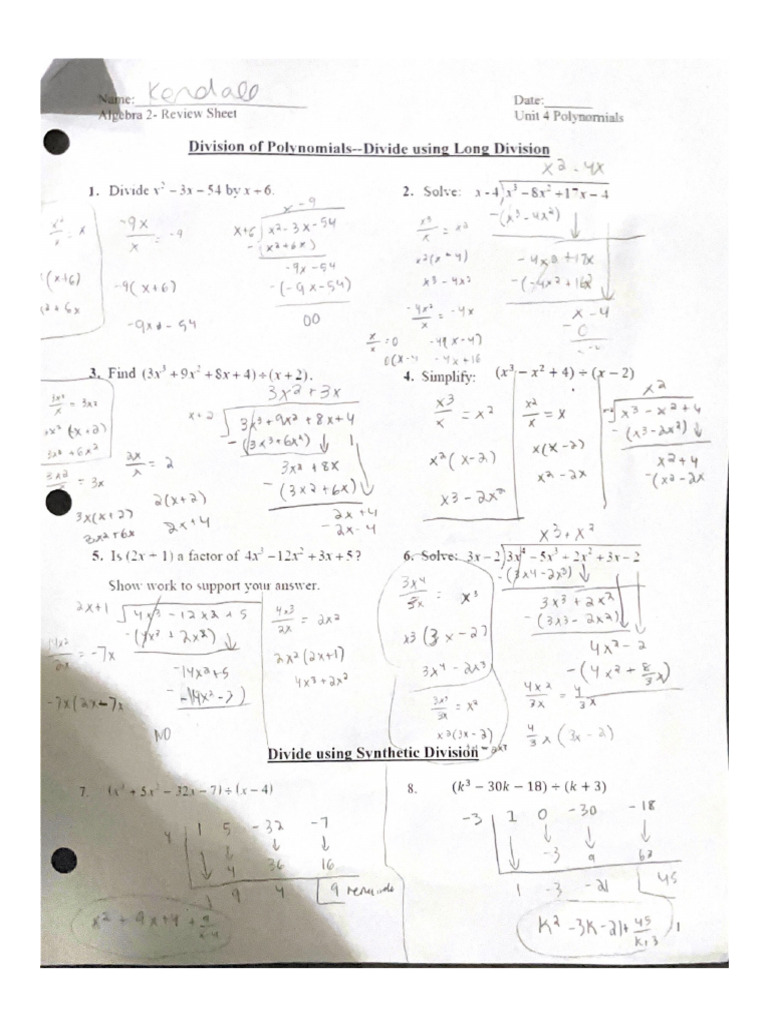 Name: Kendall Date:
Algebra 2- Review Sheet Unit 4 Polynomials
Division of Polynomials--Divide using Long Division
1. Divide x² – 3x – 54 by x + 6.
x - 9
x+6 x² - 3x - 54
- (x² + 6x)
-9x - 54
-(-9x - 54)
00
-9x / x = -9
-9(x+6)
-9x - 54
(x+6)
2. Solve: x - 4 x³ – 8x² + 17x – 4
x² - 4x
-(x³ - 4x²)
-4x² + 17x
-(-4x² + 16x)
x - 4
- 0
x³ / x = x²
x²(x - 4)
x³ - 4x²
-4x² / x = -4x
-4x(x-4)
-4x + 16
3. Find (3x³ + 9x² + 8x + 4) ÷ (x + 2).
3x² + 3x
x+2 3x³ + 9x² + 8x + 4
- (3x³ + 6x²)
3x² + 8x
- (3x2 + 6x)
2x + 4
- 2x - 4
3x³ / x = 3x²
3x² (x+2)
3x³ + 6x²
3x² / x = 3x
3x(x+2)
3x² + 6x
2x / x = 2
2(x+2)
2x+4
4. Simplify: (x³ – x² + 4) ÷ (x – 2)
x²
x³ - x² + 4
- (x³ - 2x²)
x² + 4
-(x² - 2x
x3 / x = x²
x²(x-2)
x3 - 2x²
x² / x = x
x(x-2)
x² - 2x
5. Is (2x + 1) a factor of 4x³ –12x² + 3x + 5?
Show work to support your answer.
2x+1 4x3 - 12x2 + 5
-14x2+5
4x3 / 2x = 2x²
2x²(2x+1)
4x³+2x²
= -7x
-7x(2x - 7x
NO
6. Solve: 3x – 2 3x⁴ – 5x³ + 2x² + 3x – 2
x3 + x²
- (3x4 - 2x3)
3x3 + 2x²
- (3x3 - 2x²)
4x² - 2
-(4x² + 8/3x)
3x4 / 3x = x³
x3 (3x-2)
3x4 - 2x3
3x³ / 3x = x²
x2(3x-2)
4x2 / 3x = 4/3 x
4/3 x (3x - 2)
Divide using Synthetic Division
7. (x³ + 5x² – 32x – 7) ÷ (x – 4)
4 1 5 -32 -7
4 36 16
1 9 4 9 remainder
x² + 9x + 4 + 9/x-4
8. (k³ – 30k – 18) ÷ (k + 3)
-3 1 0 -30 -18
-3 9 63
1 -3 -21 45
K² - 3K - 21 + 45/k+3